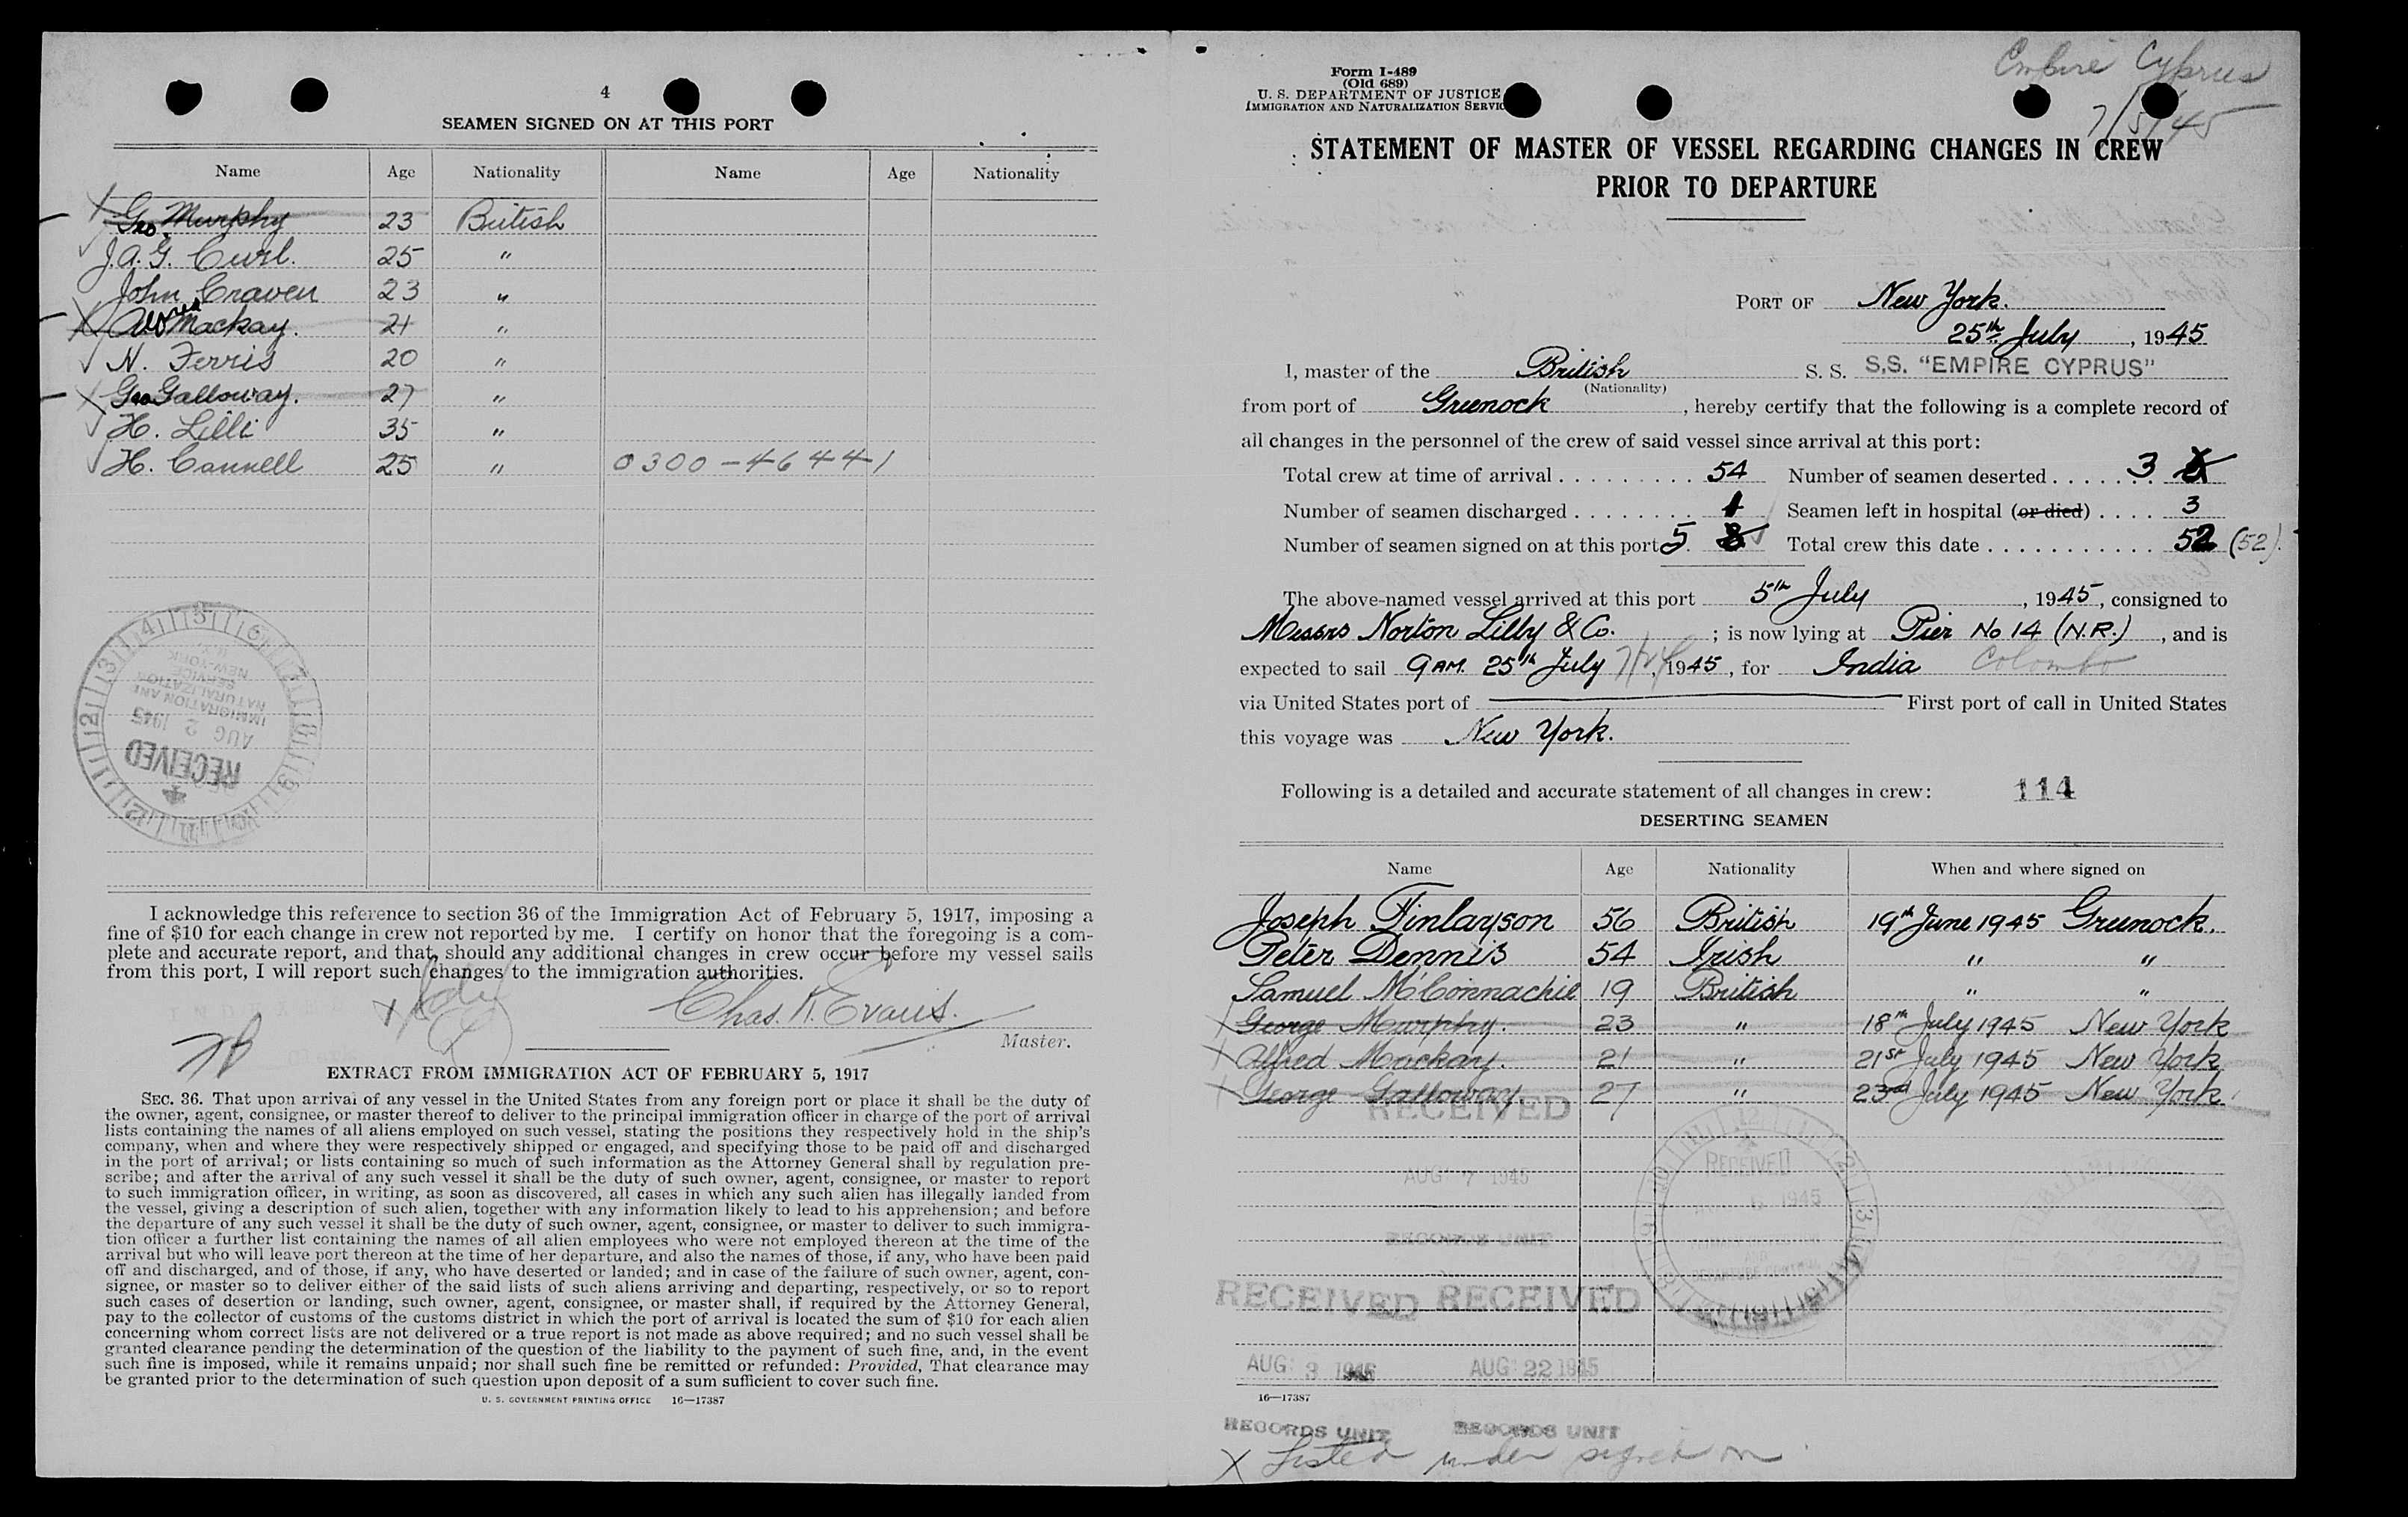 4
SEAMEN SIGNED ON AT THIS PORT
Name Age Nationality Name Age Nationality
Geo. Murphy 23 British
J.A.G. Curl. 25 "
John Craven 23 "
Alfred Mackay. 21 "
N. Ferris 20 "
Geo Galloway. 27 "
H. Lilli 35 "
H. Cannell 25 " 0300-46441
RECEIVED
AUG 2 1945
IMMIGRATION AND
NATURALIZATION
SERVICE
NEW-YORK
I acknowledge this reference to section 36 of the Immigration Act of February 5, 1917, imposing a
fine of $10 for each change in crew not reported by me. I certify on honor that the foregoing is a com-
plete and accurate report, and that, should any additional changes in crew occur before my vessel sails
from this port, I will report such changes to the immigration authorities.
Chas. K. Evans.
Master.
EXTRACT FROM IMMIGRATION ACT OF FEBRUARY 5, 1917
SEC. 36. That upon arrival of any vessel in the United States from any foreign port or place it shall be the duty of
the owner, agent, consignee, or master thereof to deliver to the principal immigration officer in charge of the port of arrival
lists containing the names of all aliens employed on such vessel, stating the positions they respectively hold in the ship's
company, when and where they were respectively shipped or engaged, and specifying those to be paid off and discharged
in the port of arrival; or lists containing so much of such information as the Attorney General shall by regulation pre-
scribe; and after the arrival of any such vessel it shall be the duty of such owner, agent, consignee, or master to report
to such immigration officer, in writing, as soon as discovered, all cases in which any such alien has illegally landed from
the vessel, giving a description of such alien, together with any information likely to lead to his apprehension; and before
the departure of any such vessel it shall be the duty of such owner, agent, consignee, or master to deliver to such immigra-
tion officer a further list containing the names of all alien employees who were not employed thereon at the time of the
arrival but who will leave port thereon at the time of her departure, and also the names of those, if any, who have been paid
off and discharged, and of those, if any, who have deserted or landed; and in case of the failure of such owner, agent, con-
signee, or master so to deliver either of the said lists of such aliens arriving and departing, respectively, or so to report
such cases of desertion or landing, such owner, agent, consignee, or master shall, if required by the Attorney General,
pay to the collector of customs of the customs district in which the port of arrival is located the sum of $10 for each alien
concerning whom correct lists are not delivered or a true report is not made as above required; and no such vessel shall be
granted clearance pending the determination of the question of the liability to the payment of such fine, and, in the event
such fine is imposed, while it remains unpaid; nor shall such fine be remitted or refunded: Provided, That clearance may
be granted prior to the determination of such question upon deposit of a sum sufficient to cover such fine.
U. S. GOVERNMENT PRINTING OFFICE 16—17387
Empire Cyprus
7/5/45
Form I-489
(Old 689)
U. S. DEPARTMENT OF JUSTICE
IMMIGRATION AND NATURALIZATION SERVIC
STATEMENT OF MASTER OF VESSEL REGARDING CHANGES IN CREW
PRIOR TO DEPARTURE
PORT OF New York.
25th July, 1945
I, master of the British S. S. S.S. "EMPIRE CYPRUS"
(Nationality)
from port of Greenock, hereby certify that the following is a complete record of
all changes in the personnel of the crew of said vessel since arrival at this port:
Total crew at time of arrival . . . . . . . . . 54 Number of seamen deserted . . . . . . . 3
Number of seamen discharged . . . . . . . . 1 Seamen left in hospital (or died) . . . . 3
Number of seamen signed on at this port 5. 8 Total crew this date . . . . . . . . . . . 52 (52).
The above-named vessel arrived at this port 5th July, 1945, consigned to
Messrs Norton Lilly & Co. ; is now lying at Pier No 14 (N.R.), and is
expected to sail 9 AM. 25th July, 1945, for India Colombo
via United States port of First port of call in United States
this voyage was New York.
Following is a detailed and accurate statement of all changes in crew: 114
DESERTING SEAMEN
Name Age Nationality When and where signed on
Joseph Finlayson 56 British 19th June 1945 Greenock.
Peter Dennis 54 Irish " "
Samuel McConnachie 19 British " "
George Murphy. 23 " 18th July 1945 New York
Alfred Mackay. 21 " 21st July 1945 New York
George Galloway 27 " 23rd July 1945 New York
RECEIVED
AUG 7 1945
RECORDS UNIT
RECEIVED
6 1945
DEPARTURE CONTROL
RECEIVED RECEIVED
AUG 3 1945 AUG 22 1945
16—17387
RECORDS UNIT RECORDS UNIT
X Listed under signed on